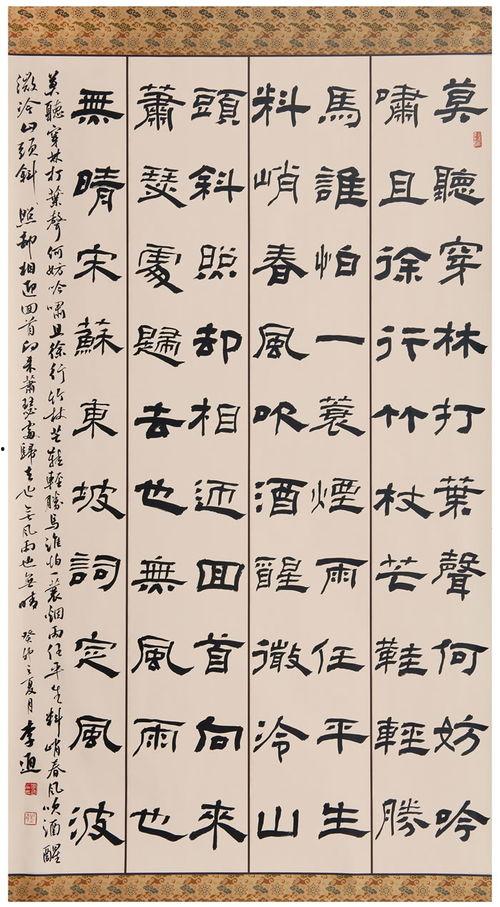 莫聽穿林打葉聲何妨吟
嘯且徐行竹杖芒鞋輕勝
馬誰怕一蓑煙雨任平生
料峭春風吹酒醒微冷山
頭斜照却相迎回首向來
蕭瑟處歸去也無風雨也
無晴宋蘇東坡詞定風波
莫聽穿林打葉聲何妨吟嘯且徐行竹杖芒鞋輕勝馬誰怕一蓑烟雨任平生料峭春風吹酒醒
微冷山頭斜照却相迎回首向來蕭瑟處歸去也无風雨也無晴 癸卯之夏月李